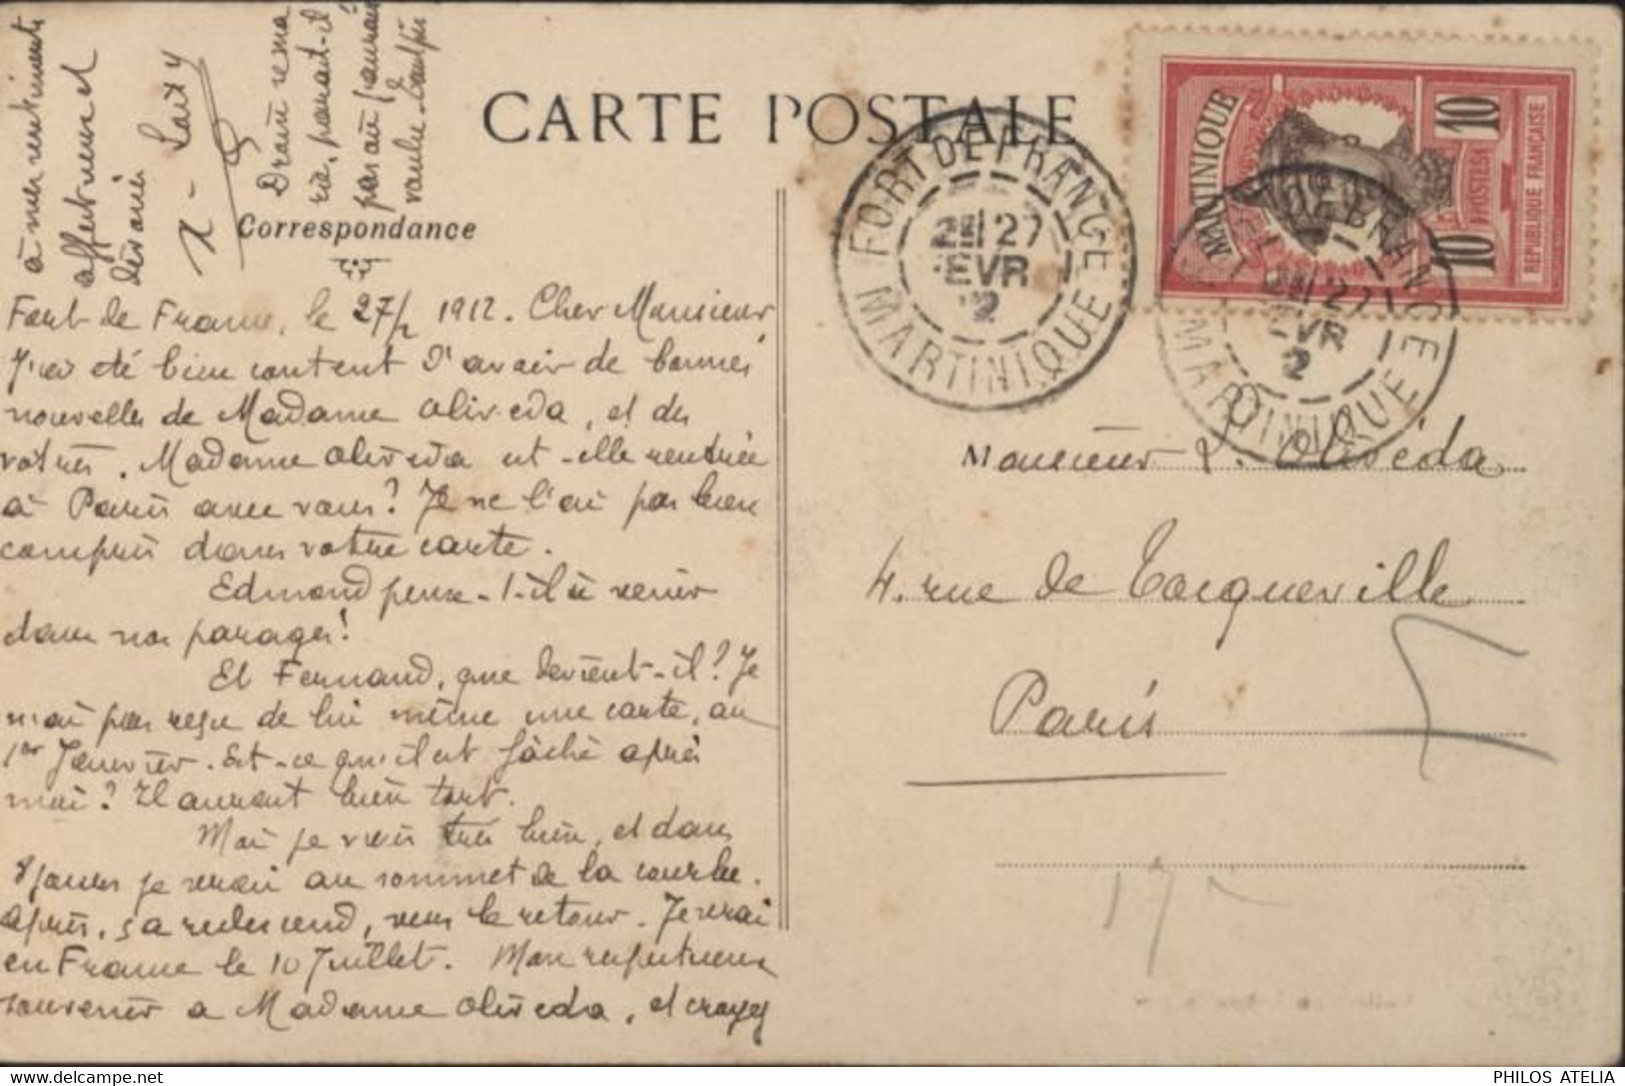 CARTE POSTALE
Correspondance
Fort de France, le 27/2 1912. Cher Monsieur,
J'ai été bien content d'avoir de bonnes
nouvelles de Madame Oliveda, et des
votres. Madame Oliveda est-elle rentrée
à Paris avec vous? Je ne l'ai pas bien
compris dans votre carte.
Edmond pense-t-il à venir
dans nos parages!
Et Fernand, que devient-il? Je
n'ai pas reçu de lui même une carte, au
1er Janvier. Est-ce qu'il est fâché après
moi? Il aurait bien tort.
Moi je vais très bien, et dans
8 jours je serai au sommet de la courbe.
Après, ça redescend, vers le retour. Je serai
en France le 10 Juillet. Mon respectueux
souvenir a Madame Oliveda, et croyez
à mes sentiments
affectueux et
dévoués
FORT DE FRANCE
27
EVR
2
MARTINIQUE
MARTINIQUE
10
10
POSTES
REPUBLIQUE FRANÇAISE
DE FRANCE
27
EVR
2
MARTINIQUE
Monsieur L. Olivéda
4. rue de Tocqueville
Paris
17
PHILOS ATELIA